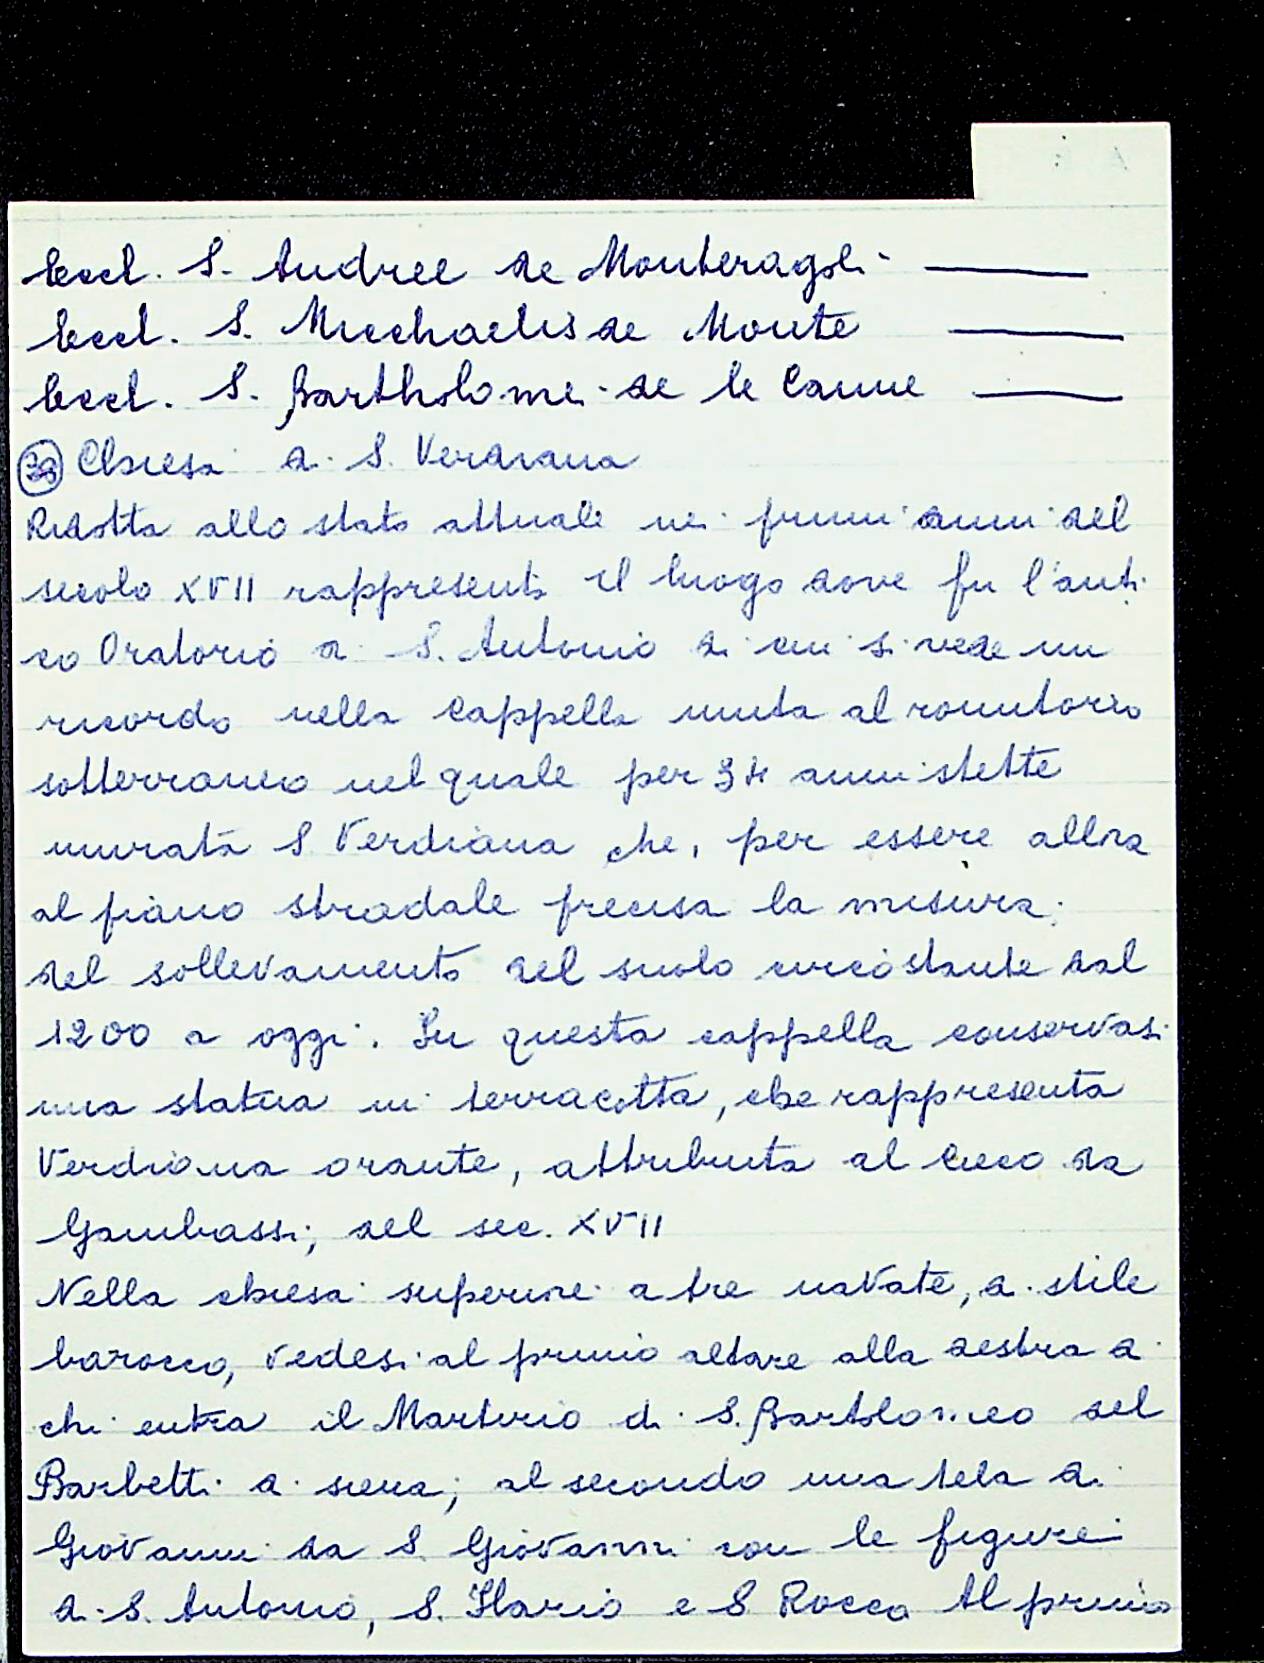 Eccl. S. Andree de Monteragoli
Eccl. S. Micchaelis de Monte
Eccl. S. Bartholomei de le Canne
Chiesa di S. Verdiana
Ridotta allo stato attuale nei primi anni del
secolo XVII rappresenta il luogo dove fu l'anti
co Oratorio di S. Antonio di cui si vede un
ricordo nella cappella unita al romitorio
sotterraneo nel quale per 34 anni stette
murata S Verdiana che, per essere allora
al piano stradale precisa la misura
del sollevamento del suolo circostante dal
1200 a oggi. In questa cappella conservasi
una statua in terracotta, che rappresenta
Verdiana orante, attribuita al Cieco da
Gambassi; del sec. XVII
Nella chiesa superiore a tre navate, di stile
barocco, vedesi al primo altare alla destra di
chi entra il Martirio di S. Bartolomeo del
Barbetti di siena; al secondo una tela di
Giovanni da S. Giovanni con le figure
di S. Antonio, S. Ilario e S Rocco Al primo